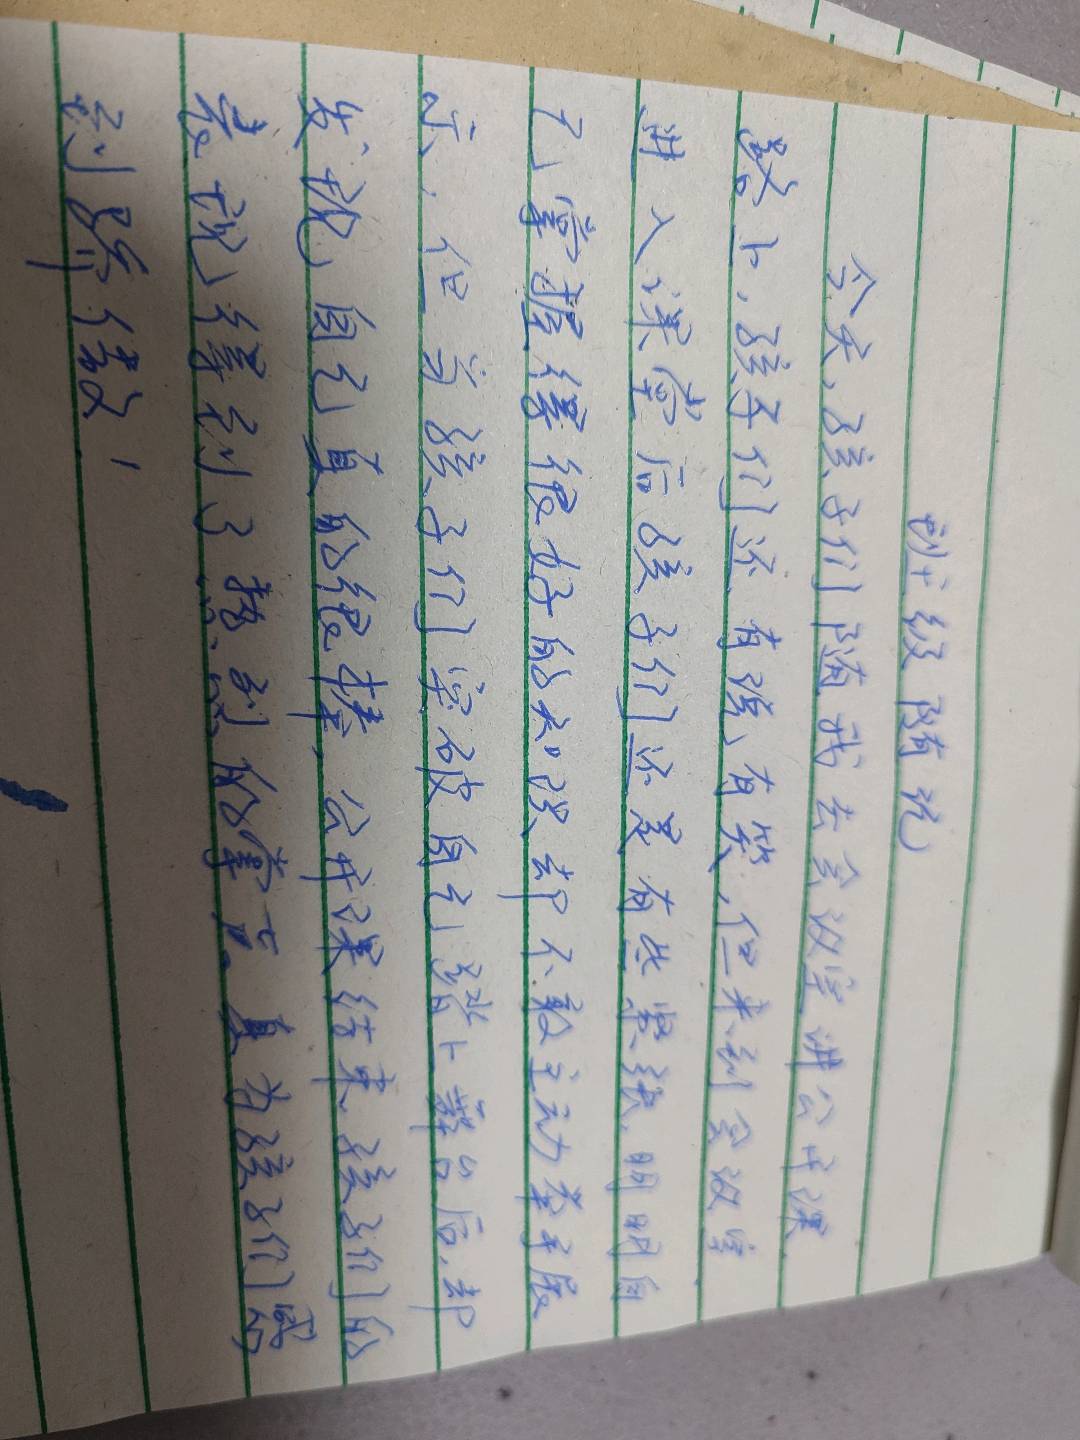 班级随记
今天，孩子们随我去会议室讲公开课，
路上，孩子们还有说有笑，但来到会议室
进入课堂后孩子们还是有些紧张，明明自
己掌握得很好的知识却不敢主动举手展
示，但当孩子们突破自己踏上舞台后，却
发现自己真的很棒，公开课结束孩子们的
表现得到了热烈的掌声，真为孩子们感
到骄傲！